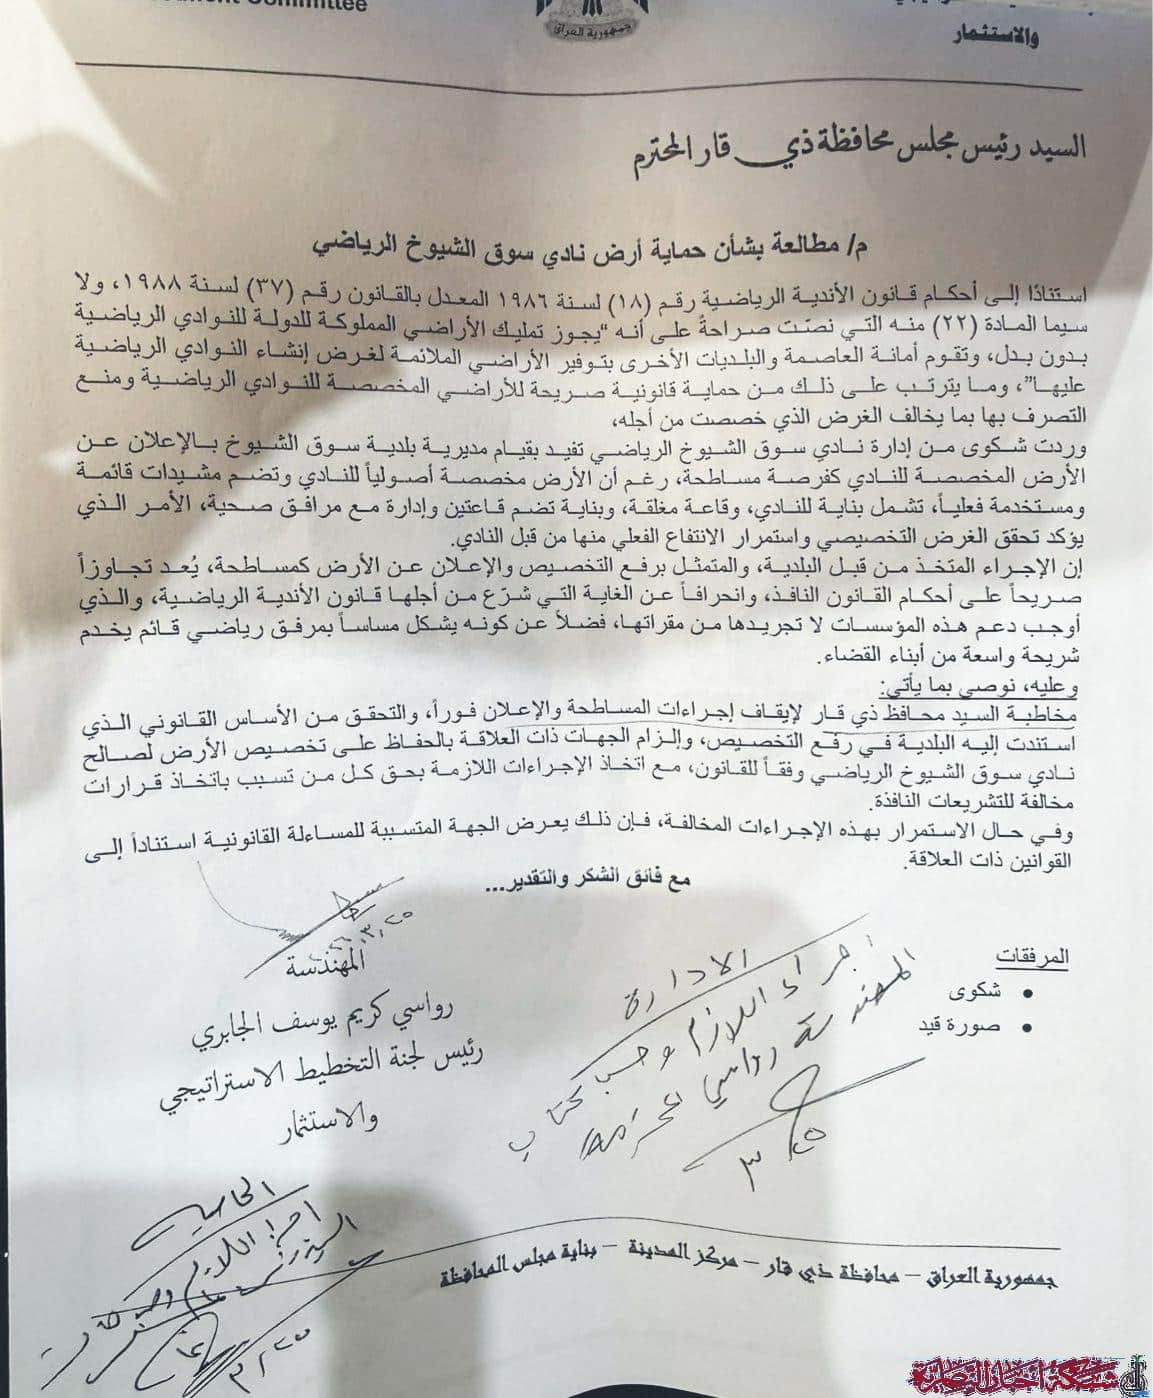 Committee
جمهورية العراق
والاستثمار
السيد رئيس مجلس محافظة ذي قار المحترم
م/ مطالعة بشأن حماية أرض نادي سوق الشيوخ الرياضي
استنادًا إلى أحكام قانون الأندية الرياضية رقم (١٨) لسنة ١٩٨٦ المعدل بالقانون رقم (٣٧) لسنة ١٩٨٨، ولا
سيما المادة (٢٢) منه التي نصّت صراحةً على أنه "يجوز تمليك الأراضي المملوكة للدولة للنوادي الرياضية
بدون بدل، وتقوم أمانة العاصمة والبلديات الأخرى بتوفير الأراضي الملائمة لغرض إنشاء النوادي الرياضية
عليها"، وما يترتب على ذلك من حماية قانونية صريحة للأراضي المخصصة للنوادي الرياضية ومنع
التصرف بها بما يخالف الغرض الذي خصصت من أجله،
وردت شكوى من إدارة نادي سوق الشيوخ الرياضي تفيد بقيام مديرية بلدية سوق الشيوخ بالإعلان عن
الأرض المخصصة للنادي كفرصة مساطحة، رغم أن الأرض مخصصة أصولياً للنادي وتضم مشيدات قائمة
ومستخدمة فعلياً، تشمل بناية للنادي، وقاعة مغلقة، وبناية تضم قاعتين وإدارة مع مرافق صحية، الأمر الذي
يؤكد تحقق الغرض التخصيصي واستمرار الانتفاع الفعلي منها من قبل النادي.
إن الإجراء المتخذ من قبل البلدية، والمتمثل برفع التخصيص والإعلان عن الأرض كمساطحة، يُعد تجاوزاً
صريحاً على أحكام القانون النافذ، وانحرافاً عن الغاية التي شرّع من أجلها قانون الأندية الرياضية، والذي
أوجب دعم هذه المؤسسات لا تجريدها من مقراتها، فضلاً عن كونه يشكل مساساً بمرفق رياضي قائم يخدم
شريحة واسعة من أبناء القضاء.
وعليه، نوصي بما يأتي:
مخاطبة السيد محافظ ذي قار لإيقاف إجراءات المساطحة والإعلان فوراً، والتحقق من الأساس القانوني الذي
استندت إليه البلدية في رفع التخصيص، وإلزام الجهات ذات العلاقة بالحفاظ على تخصيص الأرض لصالح
نادي سوق الشيوخ الرياضي وفقاً للقانون، مع اتخاذ الإجراءات اللازمة بحق كل من تسبب باتخاذ قرارات
مخالفة للتشريعات النافذة.
وفي حال الاستمرار بهذه الإجراءات المخالفة، فإن ذلك يعرض الجهة المتسببة للمساءلة القانونية استناداً إلى
القوانين ذات العلاقة.
مع فائق الشكر والتقدير...
المرفقات
• شكوى
• صورة قيد
المهندسة
رواسي كريم يوسف الجابري
رئيس لجنة التخطيط الاستراتيجي
والاستثمار
الادارة
اجراء اللازم وحسب كتاب
المهندسة رواسي المحترمة
٣/٢٥
اجراء اللازم
٣/٢٥
جمهورية العراق – محافظة ذي قار – مركز المدينة – بناية مجلس المحافظة
شبكة أخبار الناصرية